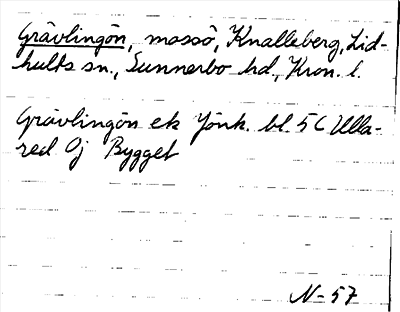 Grävlingön, mossö, Knalleberg, Lid-
hults sn., Sunnerbo hd., Kron. l.
Grävlingön ek Jönk. bl. 5C Ulla-
red Oj Bygget
N-57